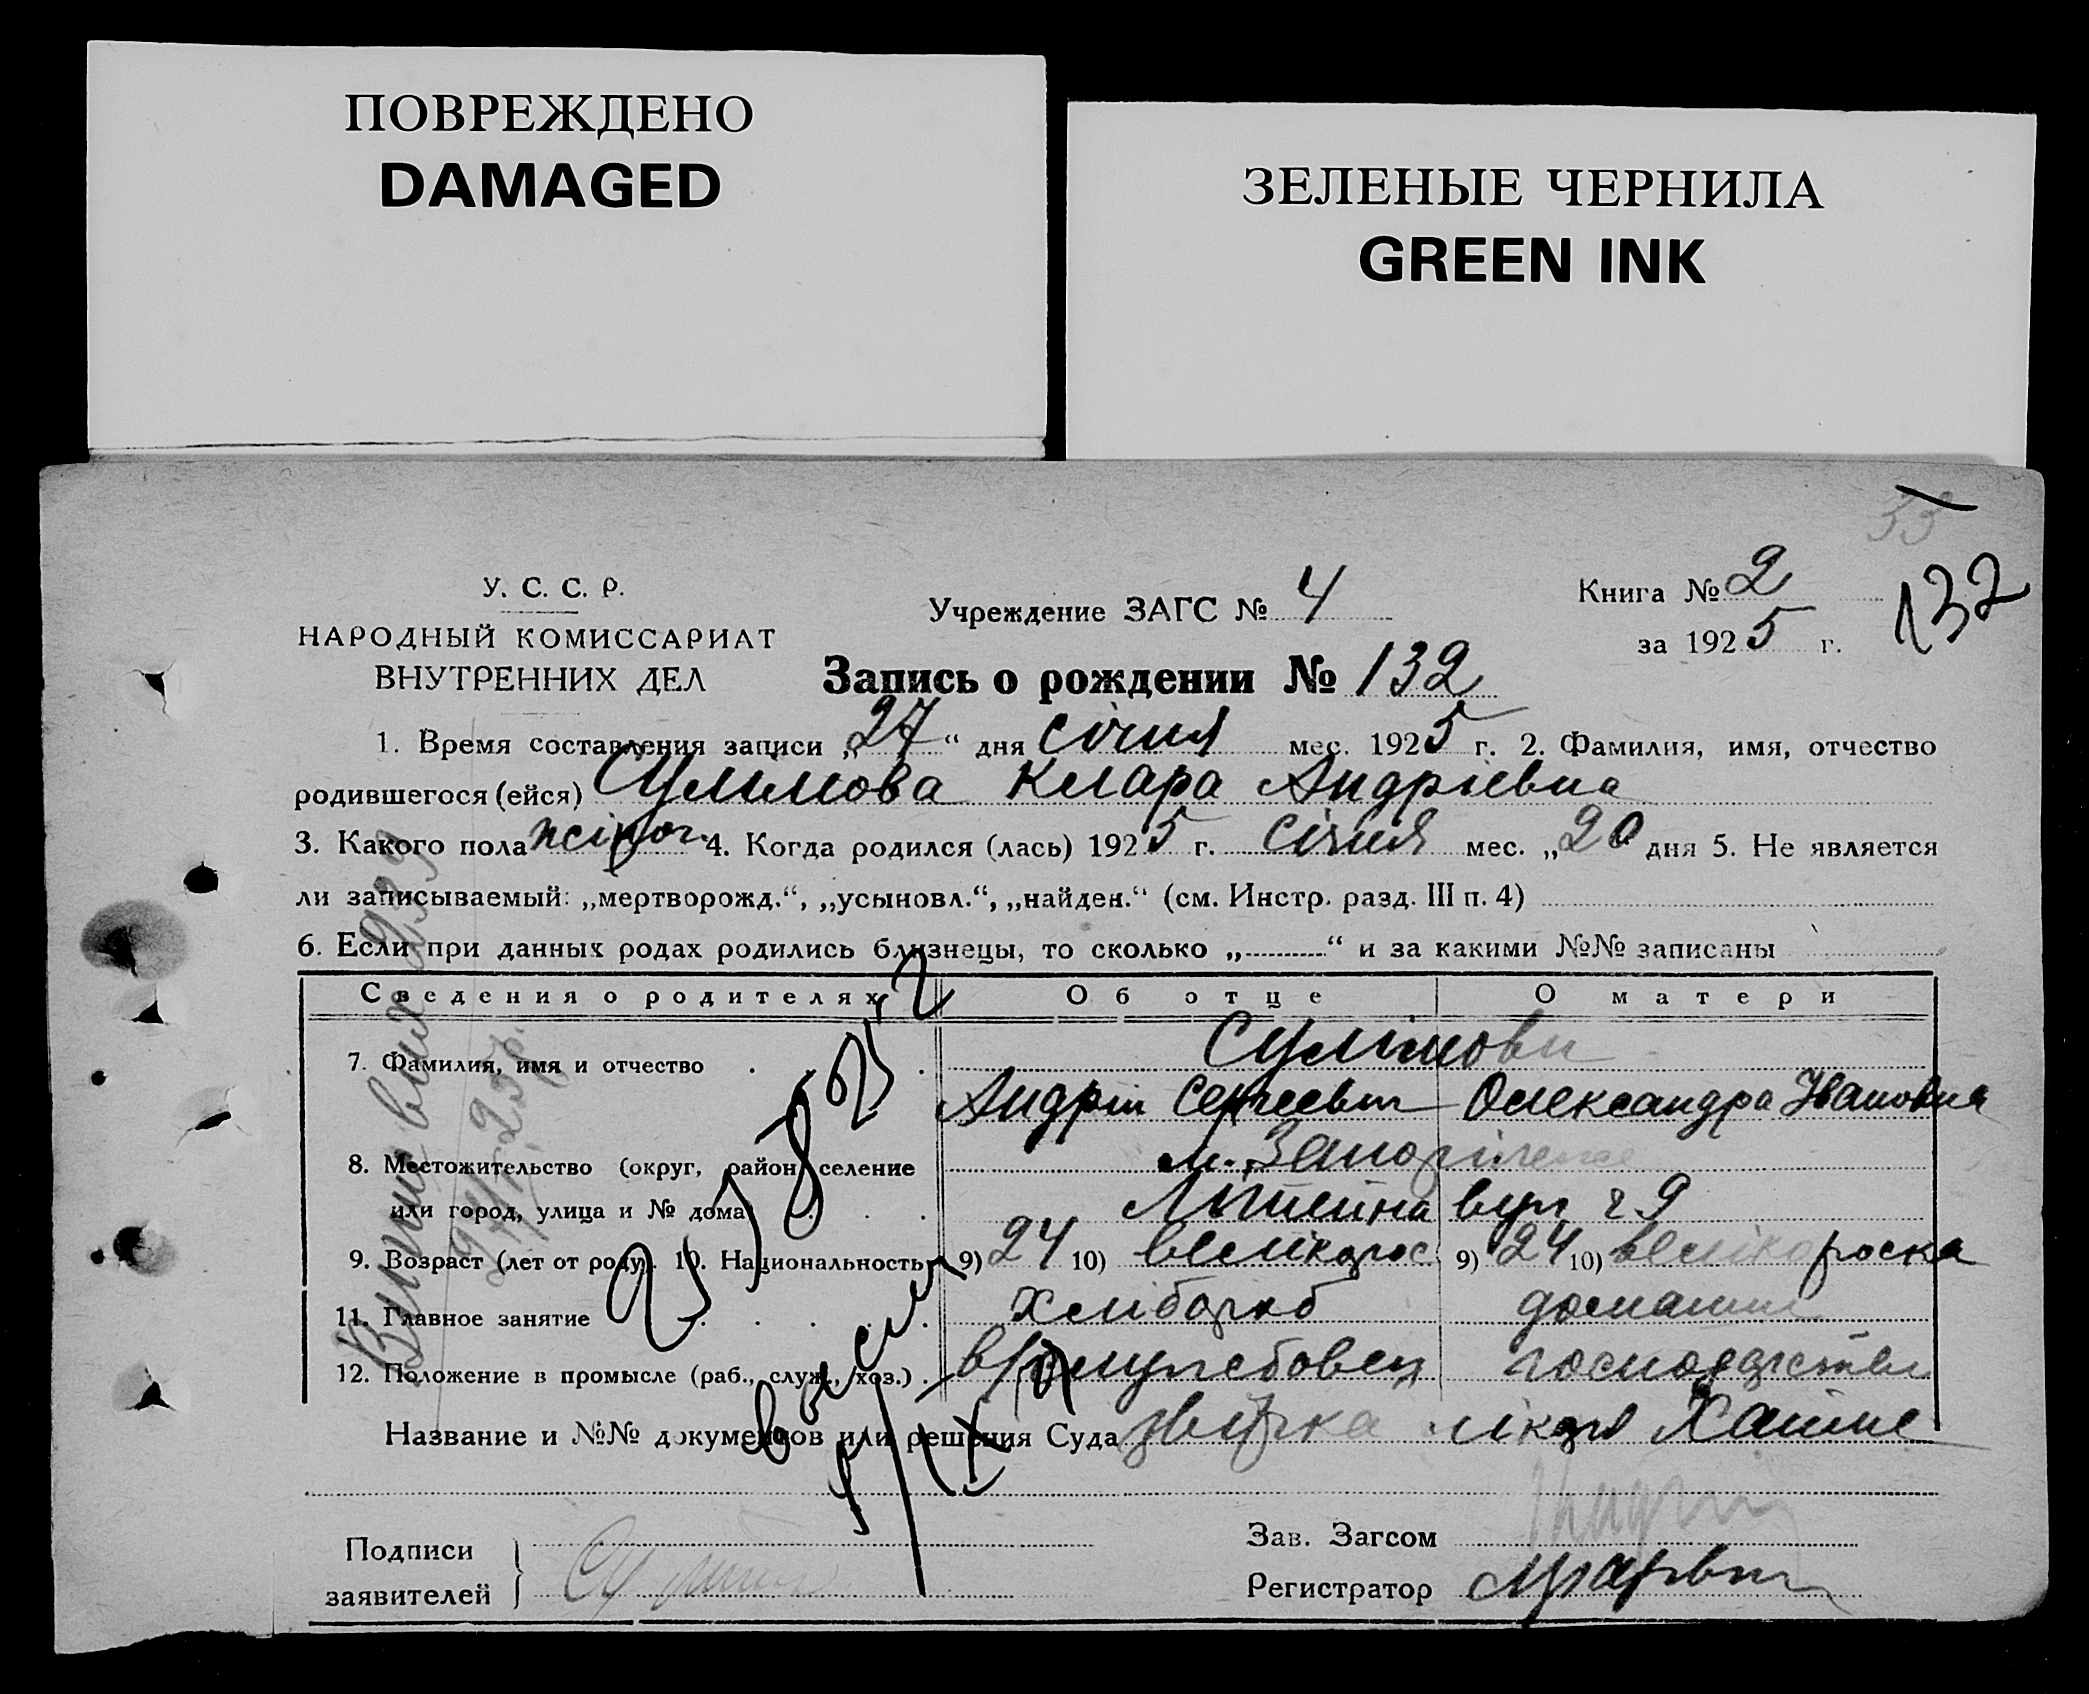 ПОВРЕЖДЕНО
DAMAGED
ЗЕЛЕНЫЕ ЧЕРНИЛА
GREEN INK
33
У. С. С. Р.
НАРОДНЫЙ КОМИССАРИАТ
ВНУТРЕННИХ ДЕЛ
Учреждение ЗАГС № 4
Книга № 2
за 1925 г.
132
Запись о рождении № 132
1. Время составления записи „27“ дня січня мес. 1925 г. 2. Фамилия, имя, отчество
родившегося (ейся) Сулімова Клара Андріевна
3. Какого пола жіноч. 4. Когда родился (лась) 1925 г. січня мес. „20 дня 5. Не является
ли записываемый: „мертворожд.“, „усыновл.“, „найден.“ (см. Инстр. разд. III п. 4)
6. Если при данных родах родились близнецы, то сколько „ “ и за какими №№ записаны
Сведения о родителях Об отце О матери
7. Фамилия, имя и отчество Сулімови
Андрій Сергеевич Олександра Івановна
8. Местожительство (округ, район, селение м. Запоріжже
или город, улица и № дома) Литейна вул ч 9
9. Возраст (лет от роду). 10. Национальность 9) 24 10) великорос 9) 24 10) великороска
11. Главное занятие хлібороб домашне
12. Положение в промысле (раб., служ., хоз.)
Название и №№ документов или решения Суда лікаря
Подписи
заявителей
Зав. Загсом
Регистратор